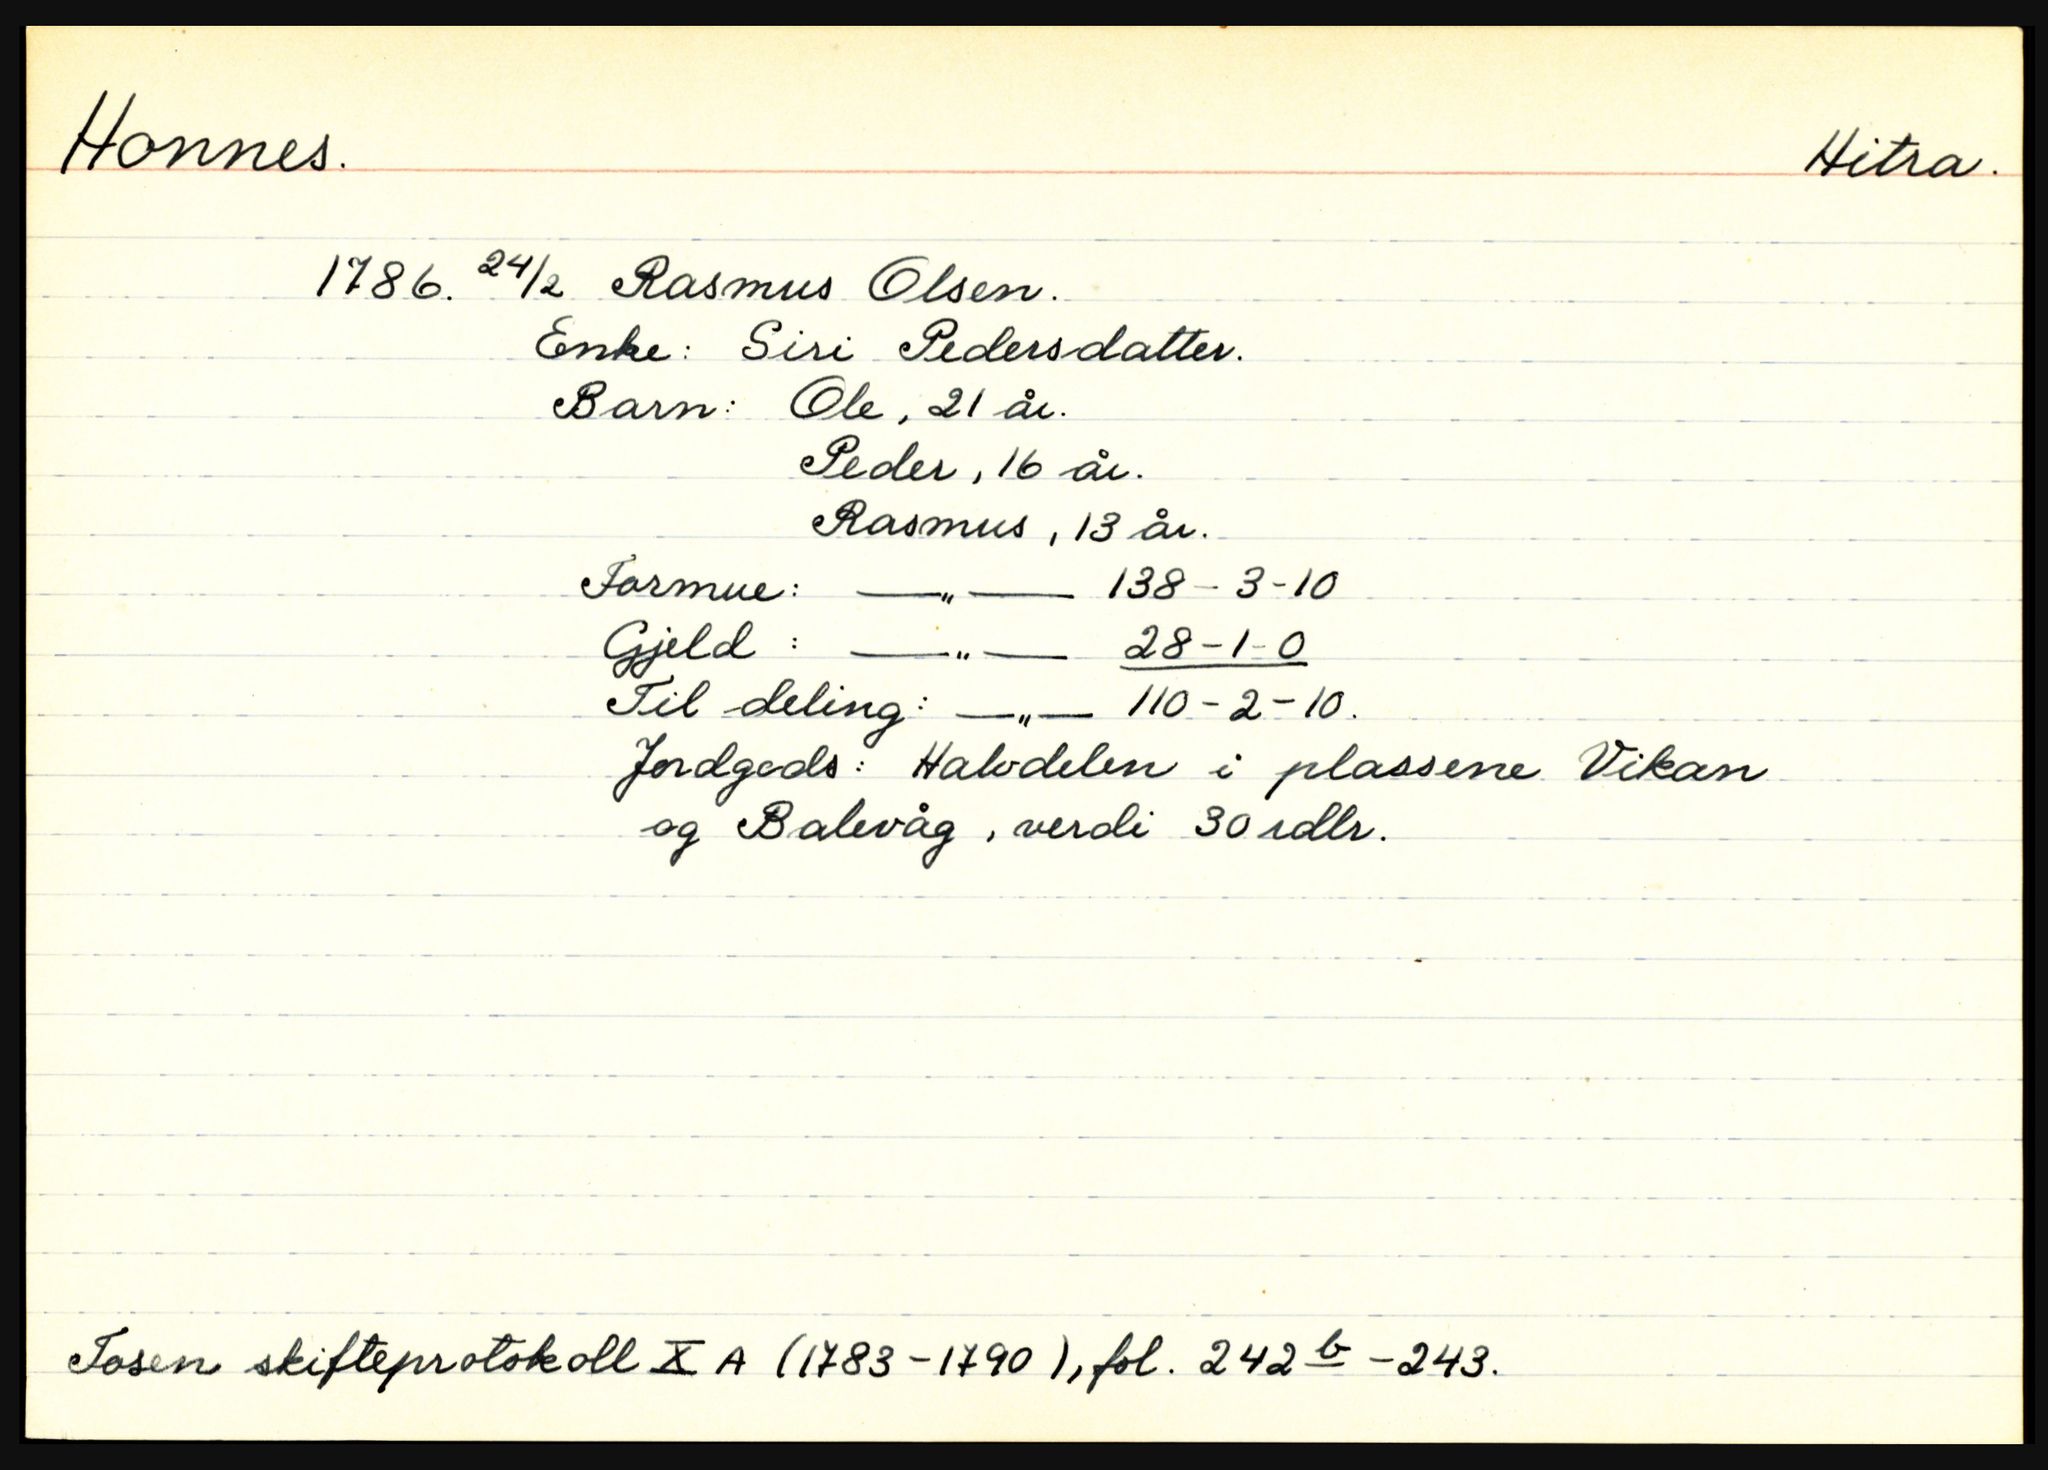 Honnes. Hitra.
1786. 24/2 Rasmus Olsen.
Enke: Siri Pedersdatter.
Barn: Ole, 21 år.
Peder, 16 år.
Rasmus, 13 år.
Formue: —„— 138-3-10
Gjeld : —„— 28-1-0
Til deling: —„— 110-2-10.
Jordgods: Halvdelen i plassene Vikan
og Balevåg, verdi 30 rdlr.
Fosen skifteprotokoll X A (1783-1790), fol. 242 b -243.